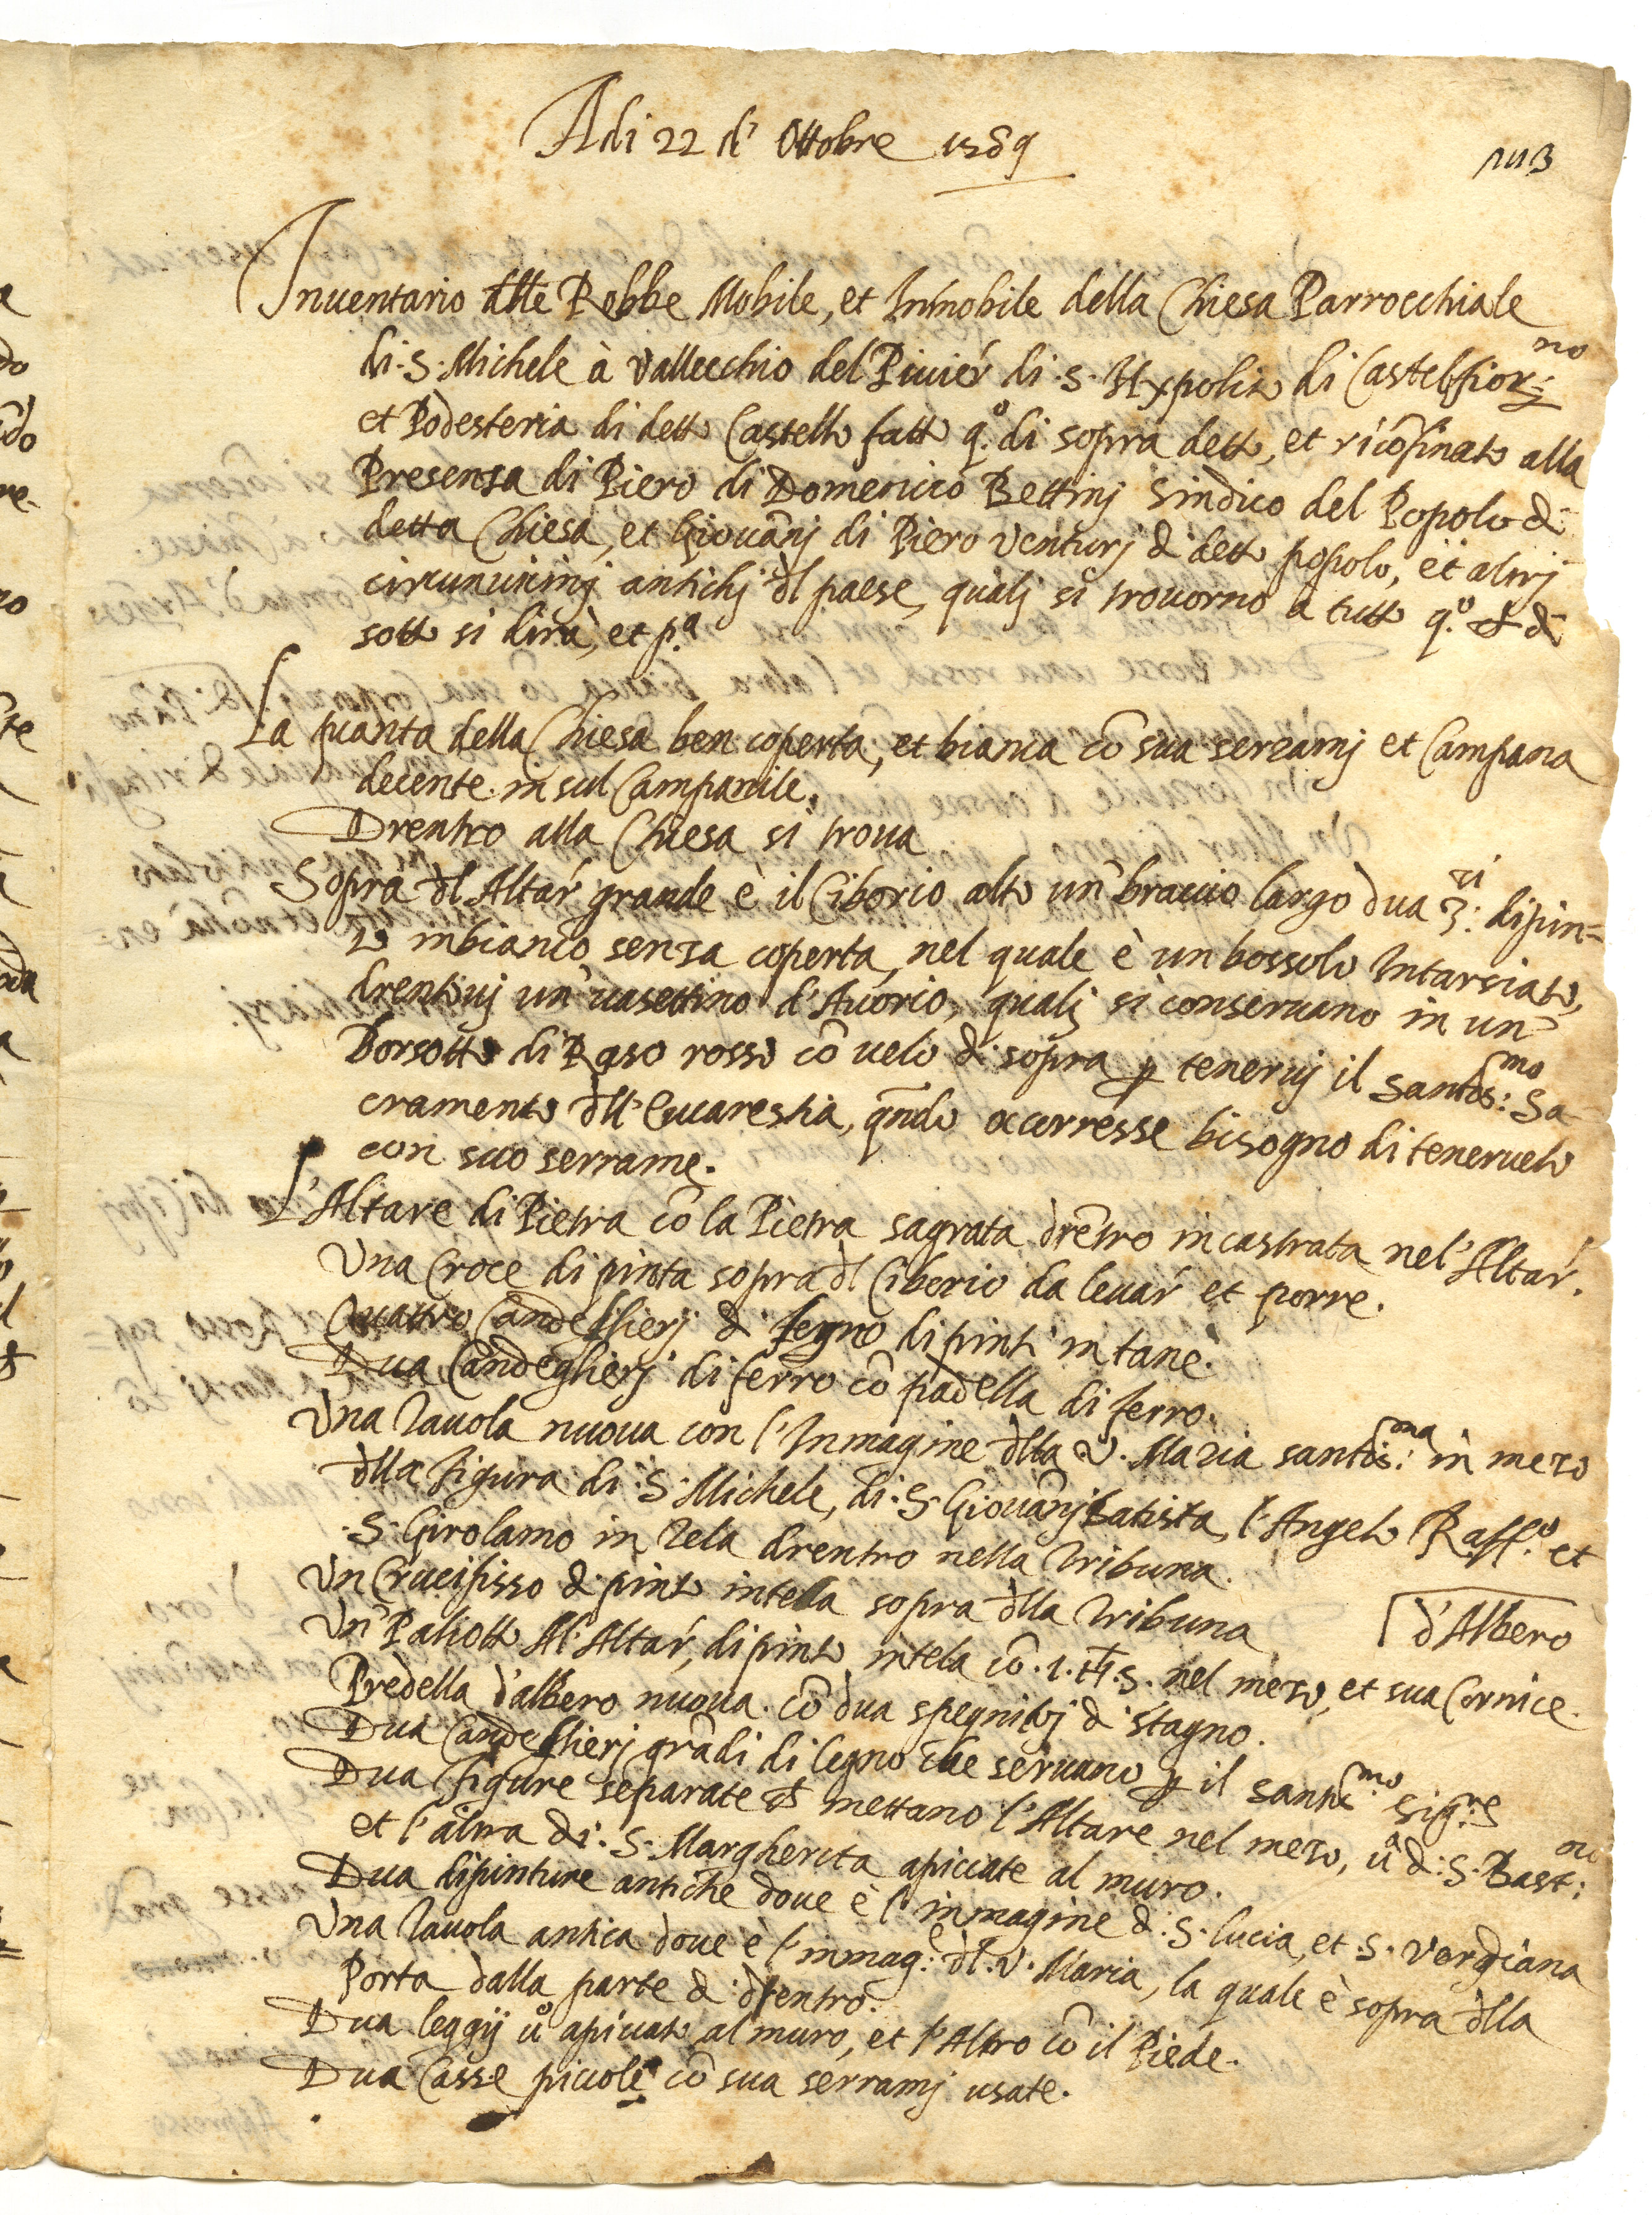 Adi 22 d' Ottobre 1589
1113
Inuentario dlle Robbe Mobile, et Inmobile della Chiesa Parrocchiale
di. S. Michele à Vallecchio del Piuier di. S. Hypolito di Castelfior:no
et Podesteria di detto Castello fatto q.o di sopra detto, et ricōsinato alla
Presenza di Piero di Domenico Bettinj Sindico del Popolo di
detta Chiesa, et Giouānj di Piero Venturj di detto popolo, et altrj
circunuicinj antichj dl paese, qualj si trouorno a tutto q.o
sotto si dirà, et p.a
La pianta della Chiesa ben coperta, et bianca cō sua serramj et Campana
decente in sul Campanile.
Drentro alla Chiesa si troua
Sopra dl Altar grande è il Ciborio alto un' braccio largo dua 3:zi dipin=
to inbianco senza coperta, nel quale è un bossolo Intarsiato,
drentouj un' uasettino d'Auorio, qualj si conseruano in un'
Borsotto di Raso rosso cō uelo di sopra p teneruj il Santis:mo Sa-
cramento dll' Eucarestia, qndo occorresse bisogno di teneruelo
con suo serrame.
L'Altare di Pietra cō la Pietra sagrata drētro incastrata nel' Altar.
Una Croce dipinta sopra dl Ciborio da leuar et porre.
Quattro Candellierj di legno dipinti in tanè.
Dua Candeglierj di ferro cō padella di ferro.
Una Tauola nuoua con l'Inmagine dlla V. Maria santis:ma in mezo
dlla Figura di. S. Michele, di. S. Giouānj Batista, l'Angelo Raff.o et
.S. Girolamo in Tela drentro nella Tribuna.
Un Crucifisso dipinto intela sopra dlla Tribuna
d'Albero
Un' Paliotto Al' Altar, dipinto intela cō .I.H.S. nel mezo, et sua Cornice.
Predella d'albero nuoua cō dua spegnitoj di stagno.
Dua Candellierj grādi di legno che seruano p il santis:mo Sig:re
Dua Figure separate mettano l'Altare nel mezo, ūa di. S. Bast:no
et l'altra di. S. Margherita apiccate al muro.
Dua dipinture antiche doue è l'inmagine di. S. Lucia, et .S. Verdiana
Una Tauola antica doue è l'inmag:e dl. V. Maria, la quale è sopra dlla
Porta dalla parte di drentro.
Dua leggij ūo apiccato al muro, et l'Altro cō il Piede.
Dua Casse piccole cō sua serramj usate.